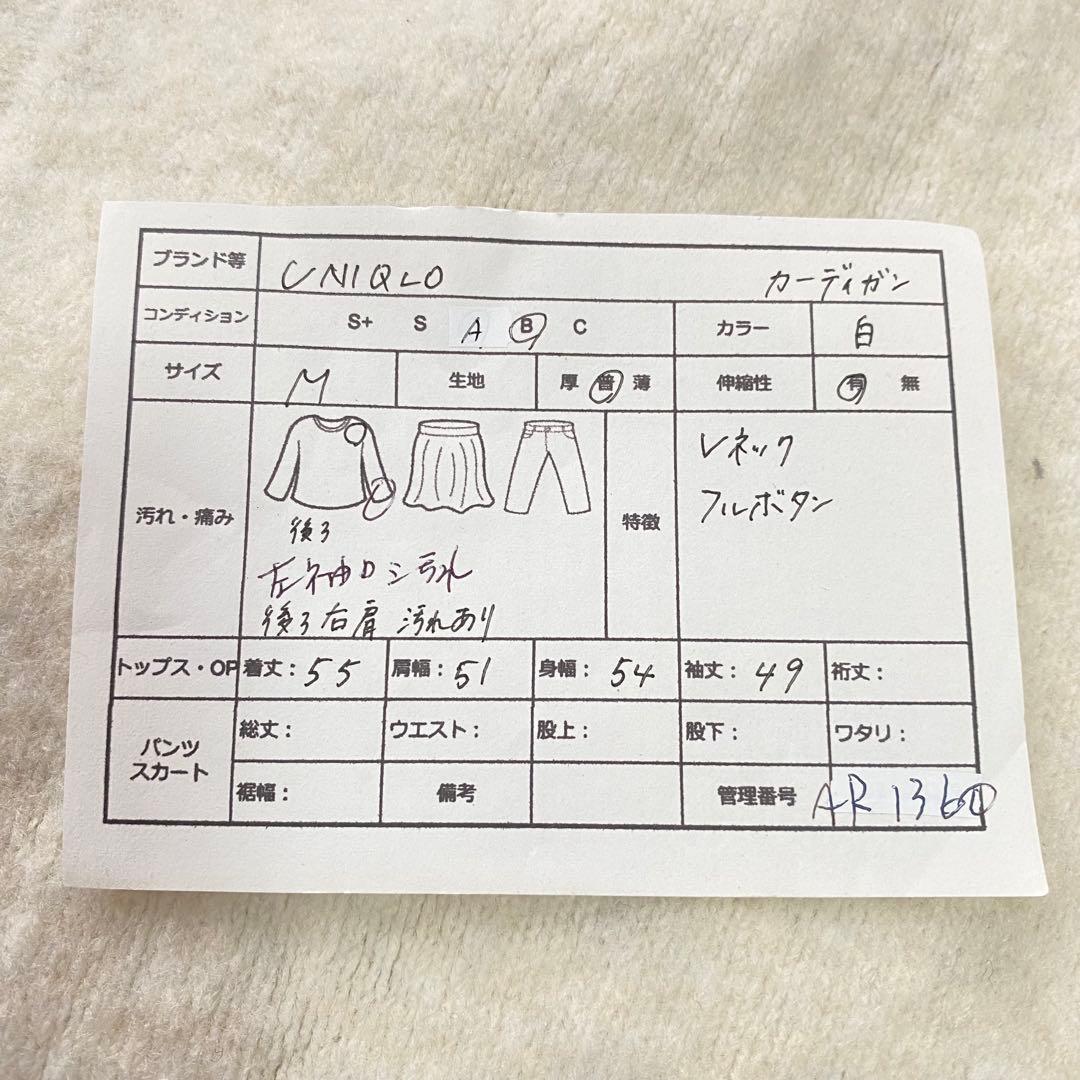 ブランド等 UNIQLO カーディガン
コンディション S+ S A B C カラー 白
サイズ M 生地 厚 普 薄 伸縮性 有 無
汚れ・痛み
後ろ
左袖口シ汚れ
後ろ右肩 汚れあり
特徴
Vネック
フルボタン
トップス・OP 着丈:55 肩幅:51 身幅:54 袖丈:49 裄丈:
パンツ
スカート
総丈: ウエスト: 股上: 股下: ワタリ:
裾幅: 備考 管理番号 AR136